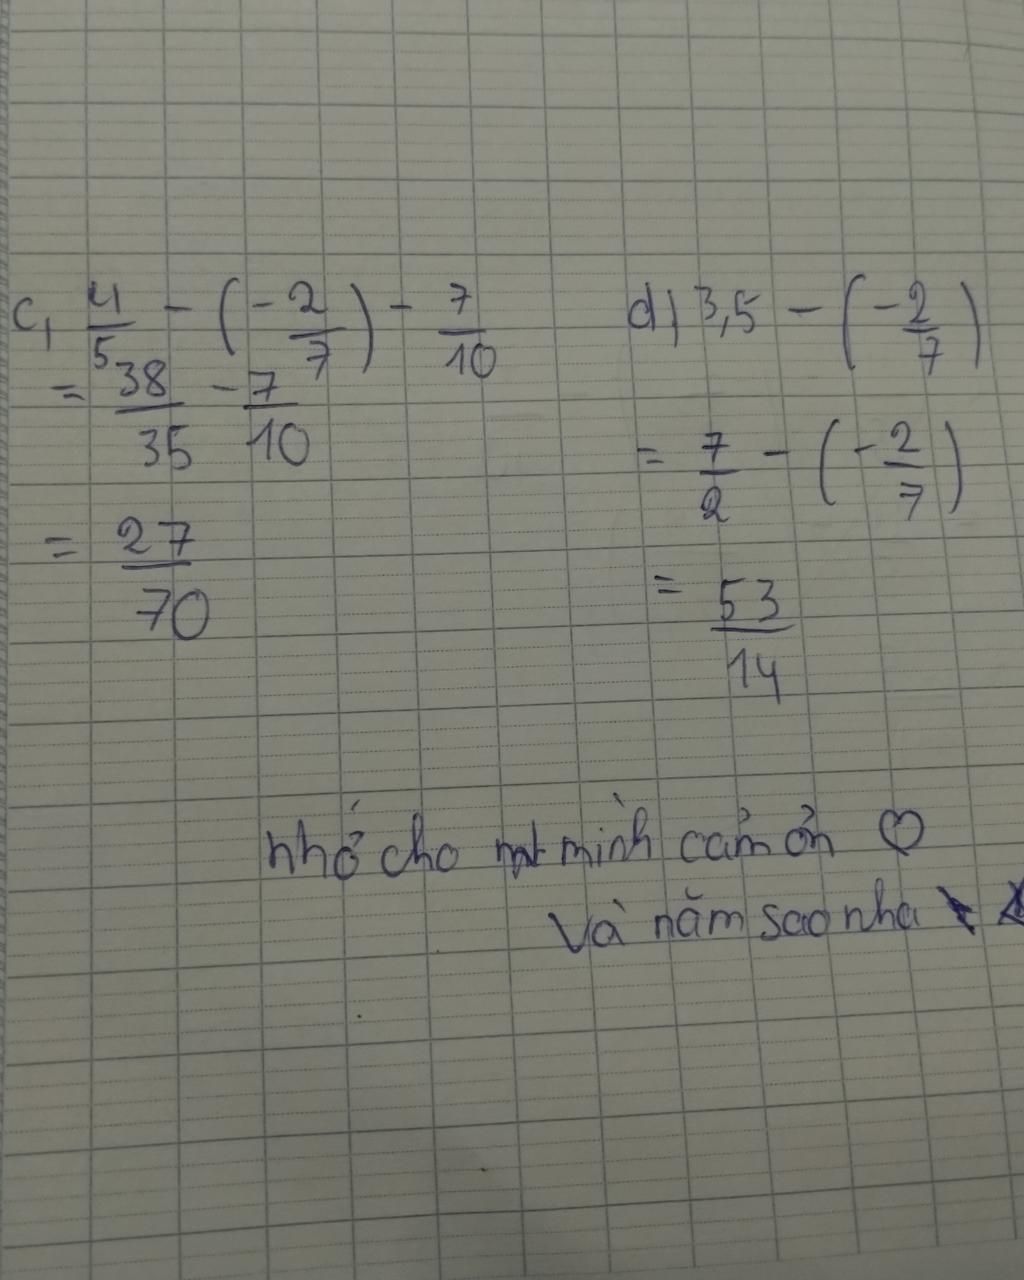 c, 4/5 - (-2/7) - 7/10
= 38/35 - 7/10
= 27/70
d) 3,5 - (-2/7)
= 7/2 - (-2/7)
= 53/14
nhớ cho mình cảm ơn ♡
và năm sao nha